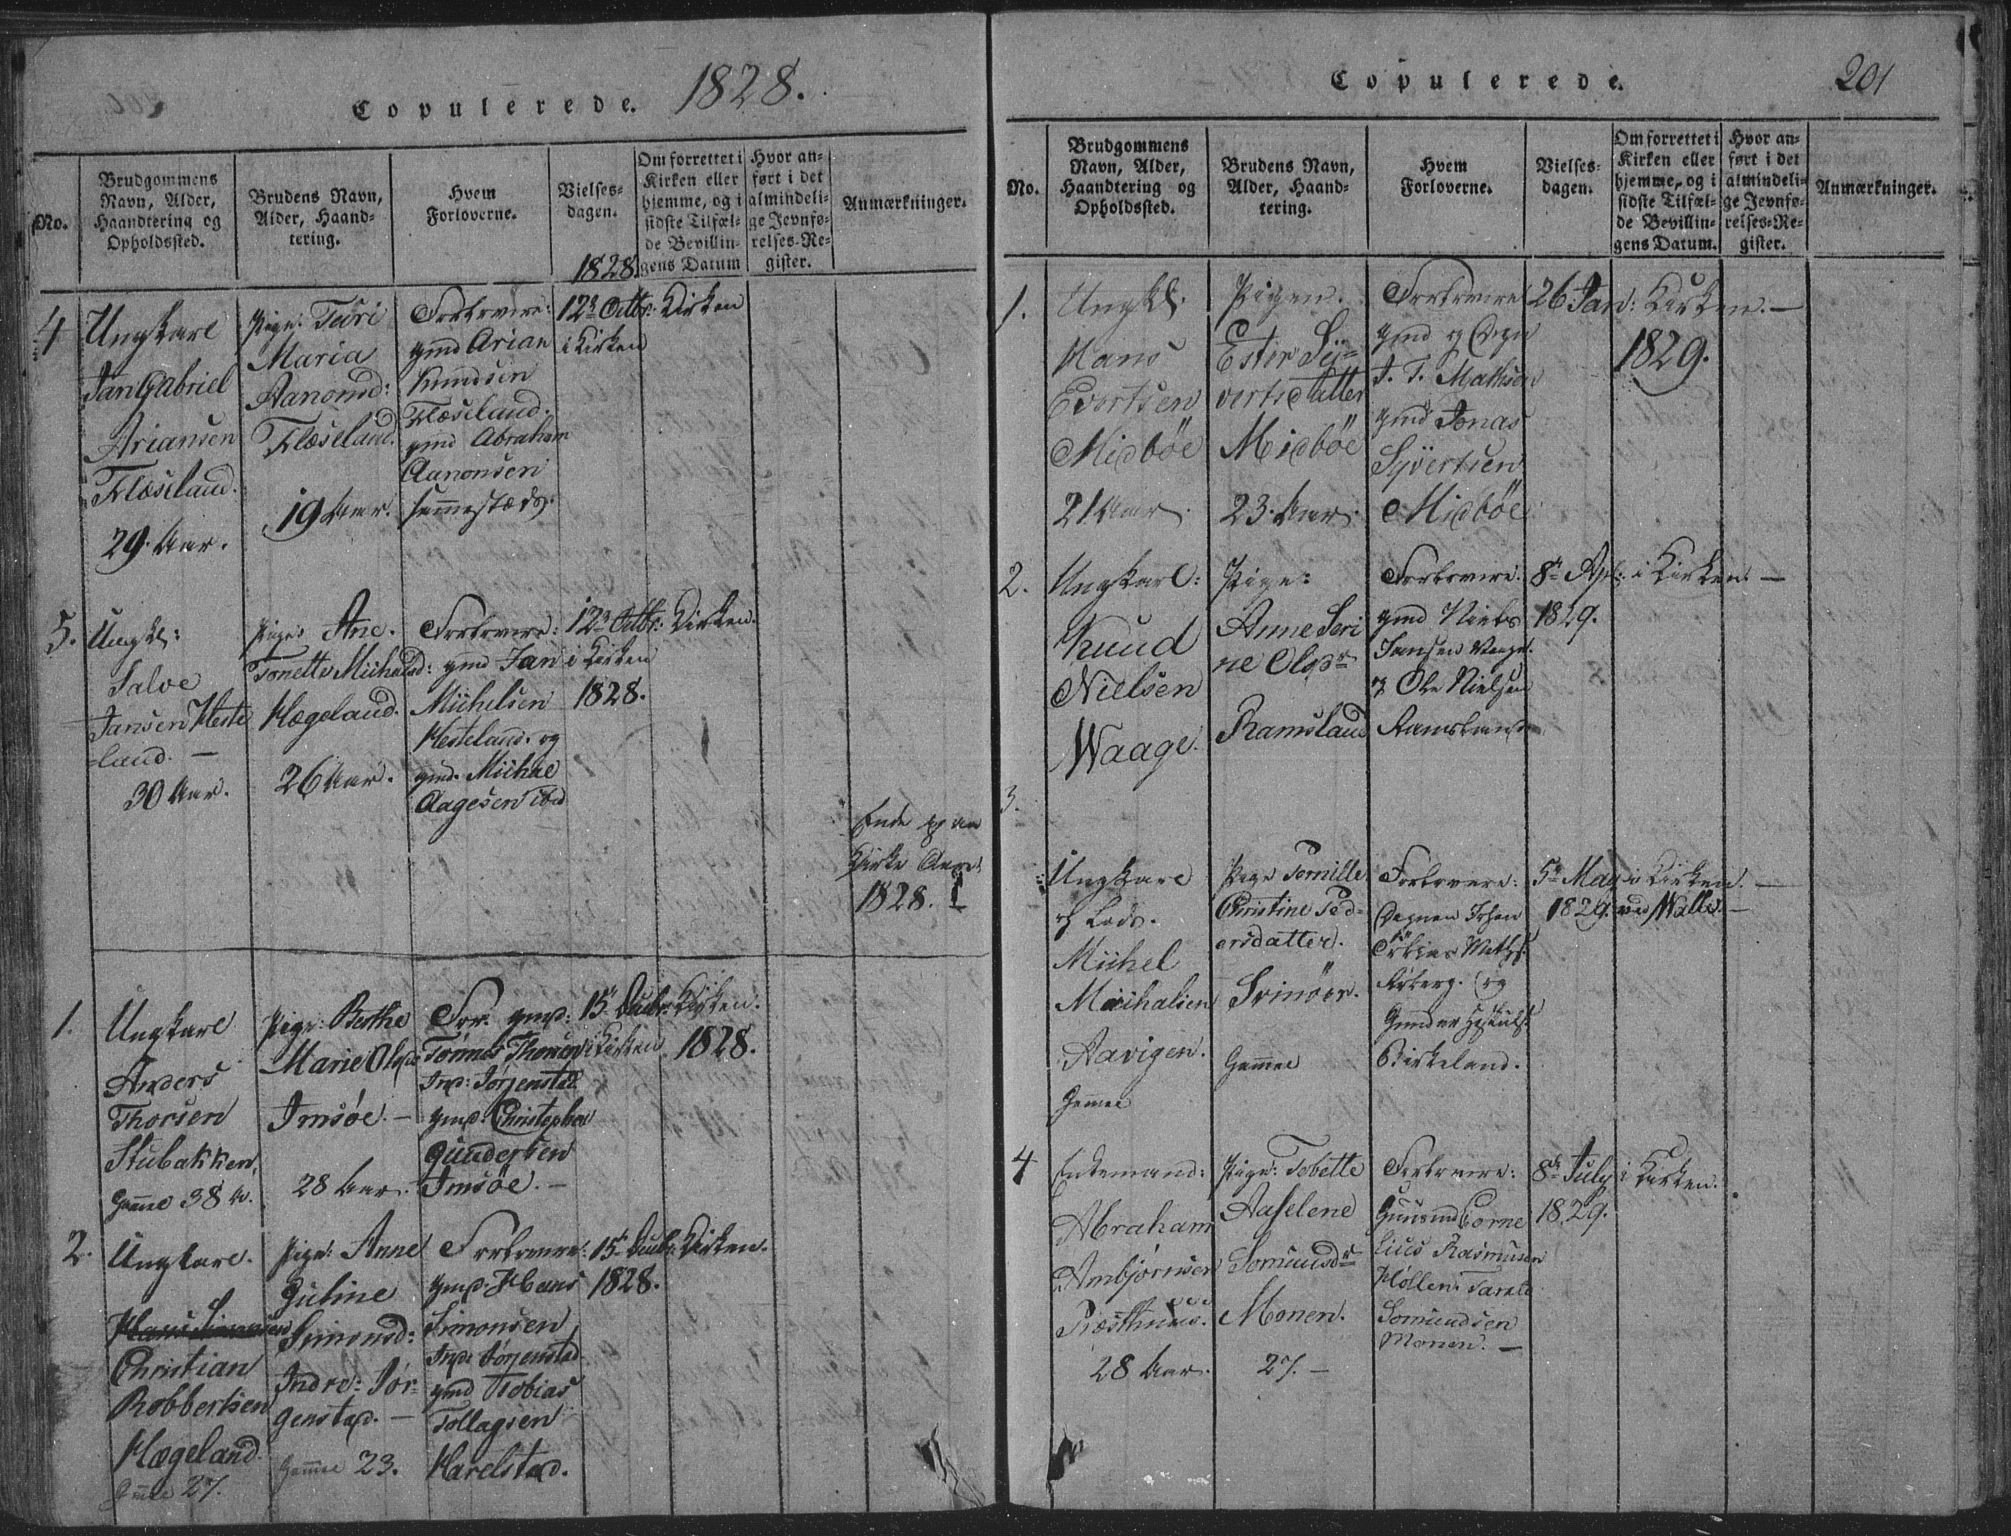 Copulerede. 1828.
No.
Brudgommens
Navn, Alder,
Haandtering og
Opholdssted.
Brudens Navn,
Alder, Haand-
tering.
Hvem
Forloverne.
Vielses-
dagen.
1828
Om forrettet i
Kirken eller
hjemme, og i
sidste Tilfæl-
de Bevillin-
gens Datum
Hvor an-
ført i det
almindeli-
ge Jevnfø-
relses-Re-
gister.
Anmærkninger.
4
Ungkarl
Jan Gabriel
Ariansen
Flæseland.
29. Aar.
Pige: Teöri
Maria
Aanonsd:
Flæseland.
19 Aar.
Forlovere:
gmd Arian
Knudsen
Flæseland.
gmd Abraham
Aanonsen
semmestæds.
12te Octbr:
i Kirken
Kirken
5.
Ungkl:
Salve
Jansen Heste
-land. —
30 Aar.
Pige: Ane.
Tonette Michelsd:
Hægeland.
26 Aar.
Forlovere:
gmd Jan
Michelsen
Hesteland. og
gmd. Michel
Aagesen ibd
12te Octbr:
i Kirken
1828.
Kirken.
Ende paa
Kirke Aaret
1828.
1.
Ungkarl
Anders
Thorsen
Stubakken,
Gamel 38 A.
Pige: Berthe
Marie Olsd
Imsöe. —
28 Aar.
For. gmd:
Tönnes Thorsen
Ind: Jörgenstad
gmd: Christopher
Gundersen
Imsöe. —
15de Decbr:
i Kirken
Kirken.
1828.
2.
Ungkarl.
Hans Simonsen
Christian
Robbertsen
Hægeland.
Gamel 27.
Pige: Anne
Guline
Simonsd:
Indre: Jör-
genstad. —
Gamel 23.
Forlovere:
gmd: Hans
Simonsen
Ind: Jörgenstad
gmd Tobias
Tollagsen
Harelstad.
15de Decbr:
1828.
Kirken.
Copulerede. 201
No.
Brudgommens
Navn, Alder,
Haandtering og
Opholdssted.
Brudens Navn,
Alder, Haand-
tering.
Hvem
Forloverne.
Vielses-
dagen.
Om forrettet i
Kirken eller
hjemme, og i
sidste Tilfæl-
de Bevillin-
gens Datum.
Hvor an-
ført i det
almindeli-
ge Jevnfø-
relses-Re-
gister.
Anmærkninger.
1.
Ungkl.
Hans
Evertsen
Midböe
21 Aar.
Pigen.
Ester Sy-
vertsdatter
Midböe
23. Aar.
Forlovere
gmd og Degn
J. T. Mathsen
gmd Jonas
Syvertsen
Midböe.
26 Jan:
Kirken. —
1829.
2.
Ungkarl:
Knud
Nielsen
Waage.
Pige:
Anne Seri
ne Olsdr
Ramsland
Forlovere:
gmd Niels
Jansen Waage.
og Ole Nielsen
Ramsland
8de Apl:
1829.
i Kirken. —
3.
Ungkarl
og Lods.
Michel
Michalsen
Aavigen.
Gamel
Pige Pernille
Christine Ped-
ersdatter.
Svinöer.
Gamel
Forlovere:
Degnen Johan
Maths.
og
Gunder
Birkeland.
5te May
1829.
i Kirken. —
ved Walle. —
4
Enkemand:
Abraham
Ambjörnsen
Præsthuus.
28 Aar.
Pige: Tobette
Aaselene
Somundsdr
Monen.
27. —
Forlovere:
Corne
lius Rasmusen
Höllen: Tarald
Somundsen
Monen. —
8de July
1829.
i Kirken.